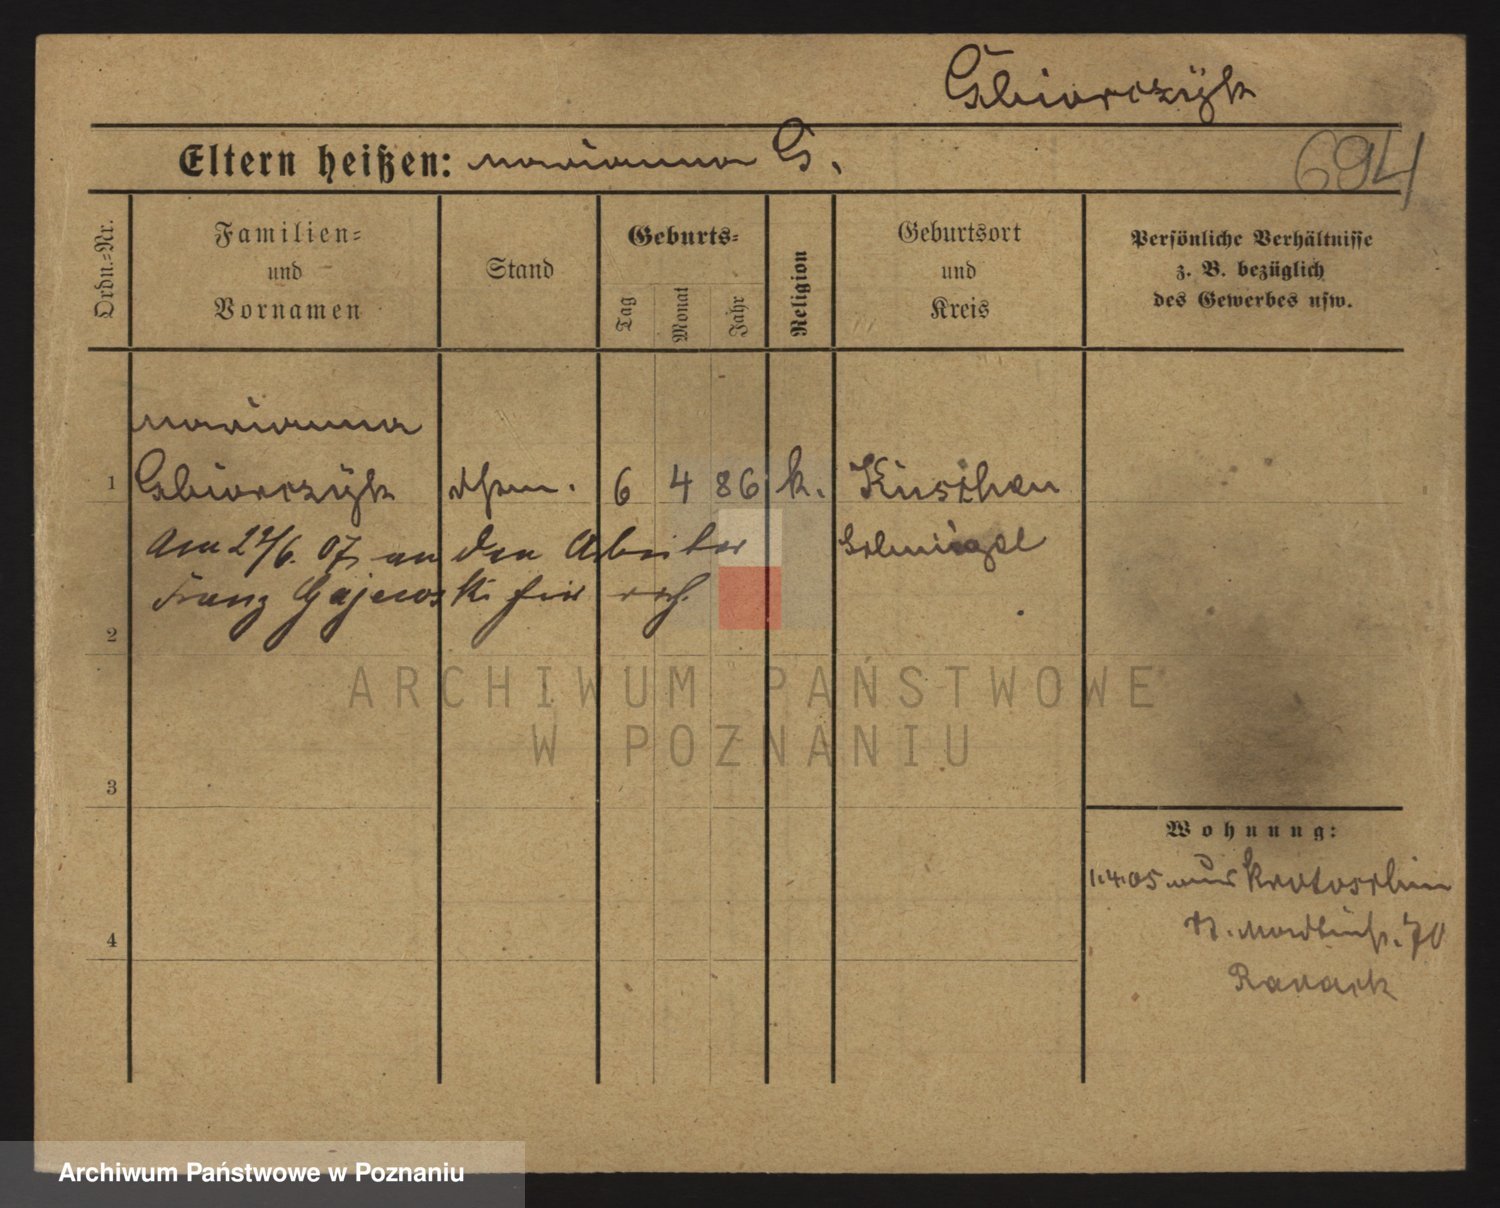 Gbiorczÿk
Eltern heißen: Marianna G.
694
Ordn.=Nr.
Familien=
und
Vornamen
Stand
Geburts=
Tag
Monat
Jahr
Religion
Geburtsort
und
Kreis
Persönliche Verhältnisse
z. B. bezüglich
des Gewerbes usw.
Marianna
1 Gbiorczÿk 6 4 86 k. Kuschen
Am 22/6. 07 an den Arbeiter Schmiegel
Franz Gajewski hier verh.
2
ARCHIWUM PAŃSTWOWE
W POZNANIU
3
Wohnung:
1.4.05 aus Krotoschin
4
70
Archiwum Państwowe w Poznaniu